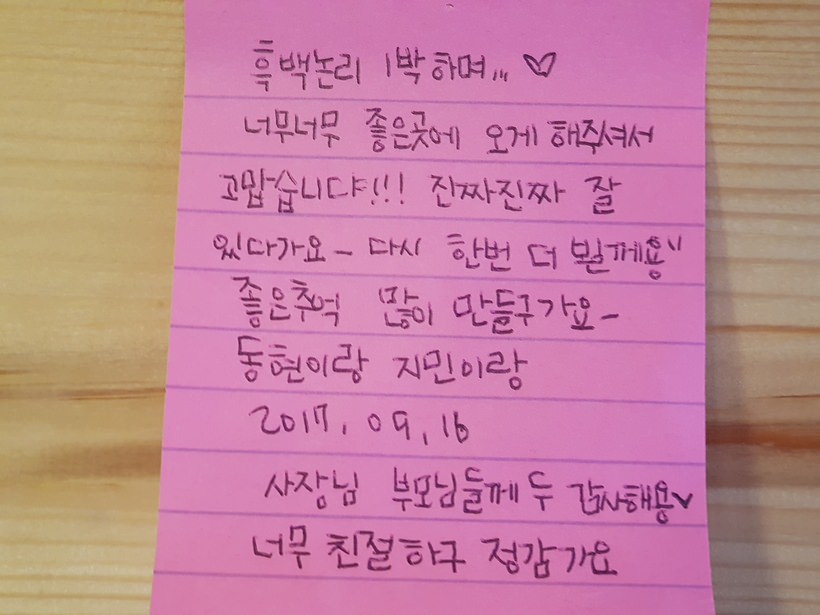 흑백논리 1박하며... ♡
너무너무 좋은곳에 오게 해주셔서
고맙습니댜!!! 진짜진짜 잘
있다가요~ 다시 한번 더 뵐께용"
좋은추억 많이 만들구가요~
동현이랑 지민이랑
2017. 09. 16
사장님 부모님들께 두 감사해용♥
너무 친절하구 정감가요